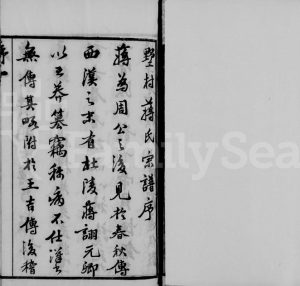 墅村蔣氏宗譜序
蔣為周公之後見於春秋傳
西漢之末有杜陵蔣詡元卿
以王莽篡竊稱病不仕漢書
無傳其略附於王吉傳後稽
序一
FamilySea